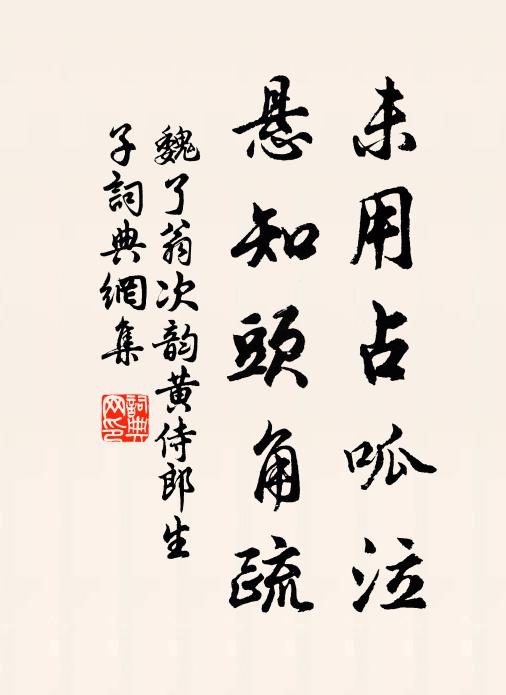 未用占呱泣
悬知頭角疏
魏了翁次韵黄侍郎生
子詞典網集
詞典网印